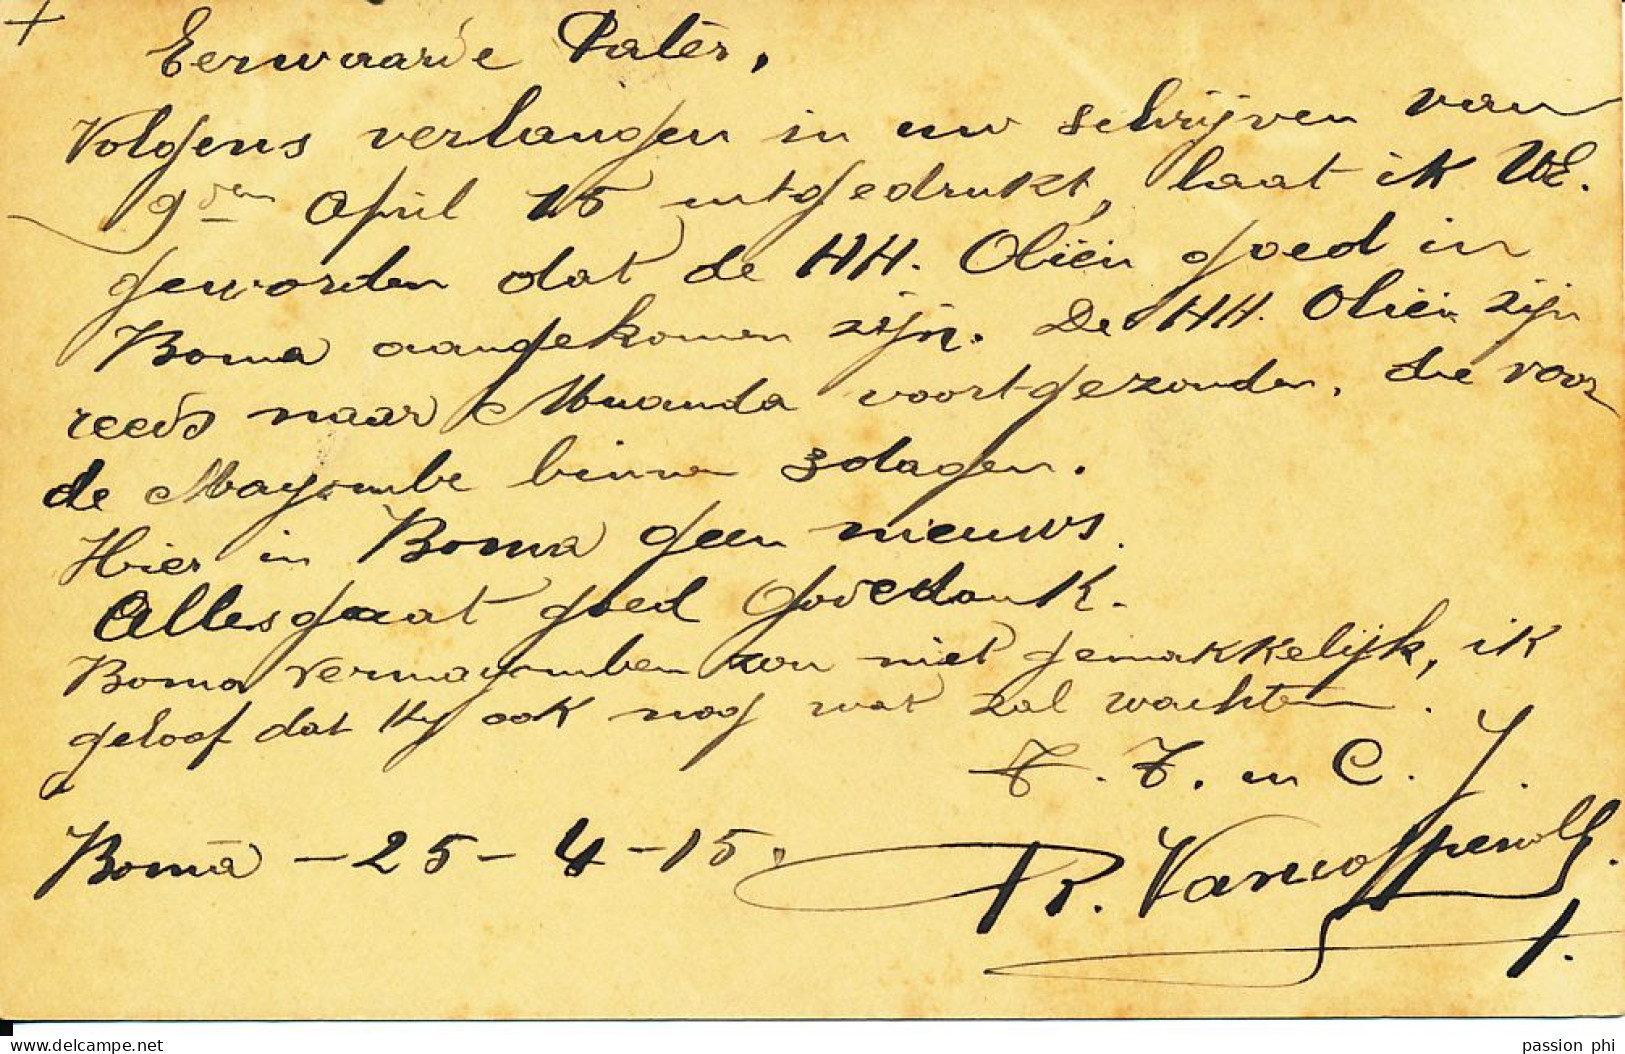 +
Eerwaarde Pater,
Volgens verlangen in uw schrijven van
9den April 15 uitgedrukt, laat ik UE.
geworden dat de HH. Oliën goed in
Boma aangekomen zijn. De HH. Oliën zijn
reeds naar Muanda voortgezonden, die voor
de Mayombe binnen 3 dagen.
Hier in Boma geen nieuws.
Alles gaat goed Godedank.
Boma vermayomben zou niet gemakkelijk, ik
geloof dat hij ook nog wat zal wachten.
T. T. in C. J.
Boma - 25 - 4 - 15.
R.
delcampe.net
passion phi